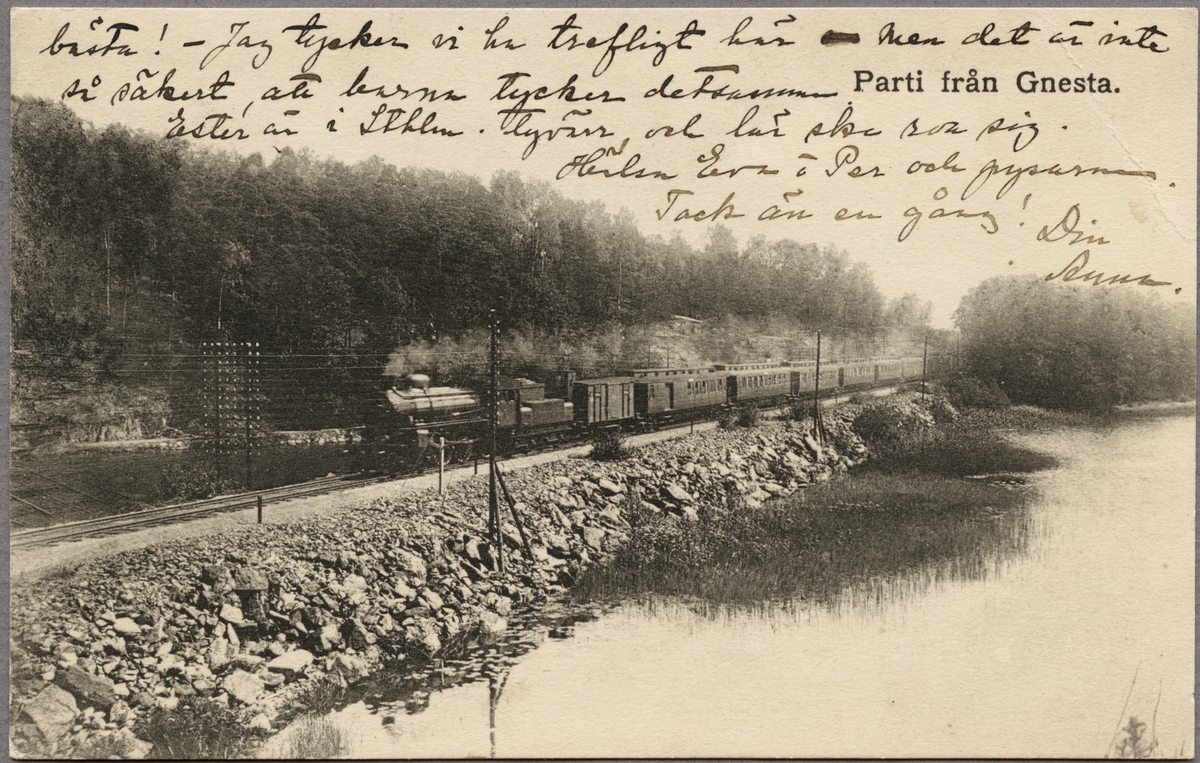 bästa! – Jag tycker vi ha trefligt här – Men det är inte
så säkert, att barna tycker detsamma
Parti från Gnesta.
Ester är i Sthlm. tyvärr, och lär ska roa sig.
Hälsa Eva o Per och pysarna.
Tack än en gång! Din
Anna.